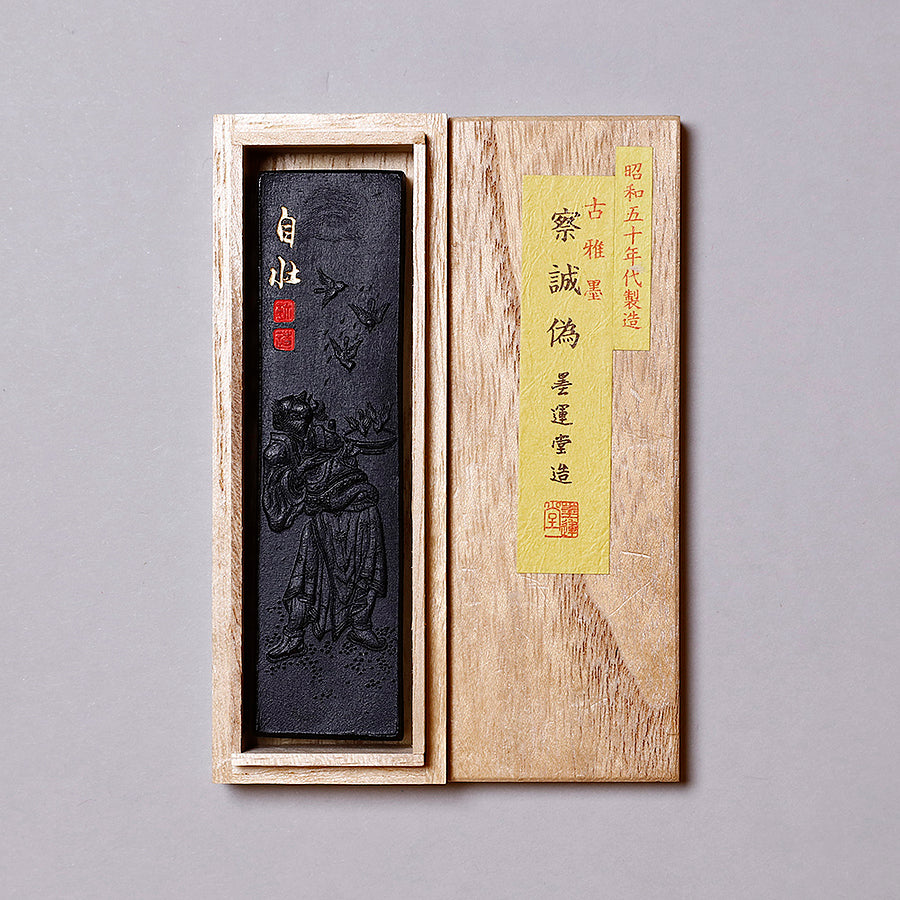 昭和五十年代製造
古雅墨
察誠偽
墨運堂造
墨運堂
自壯